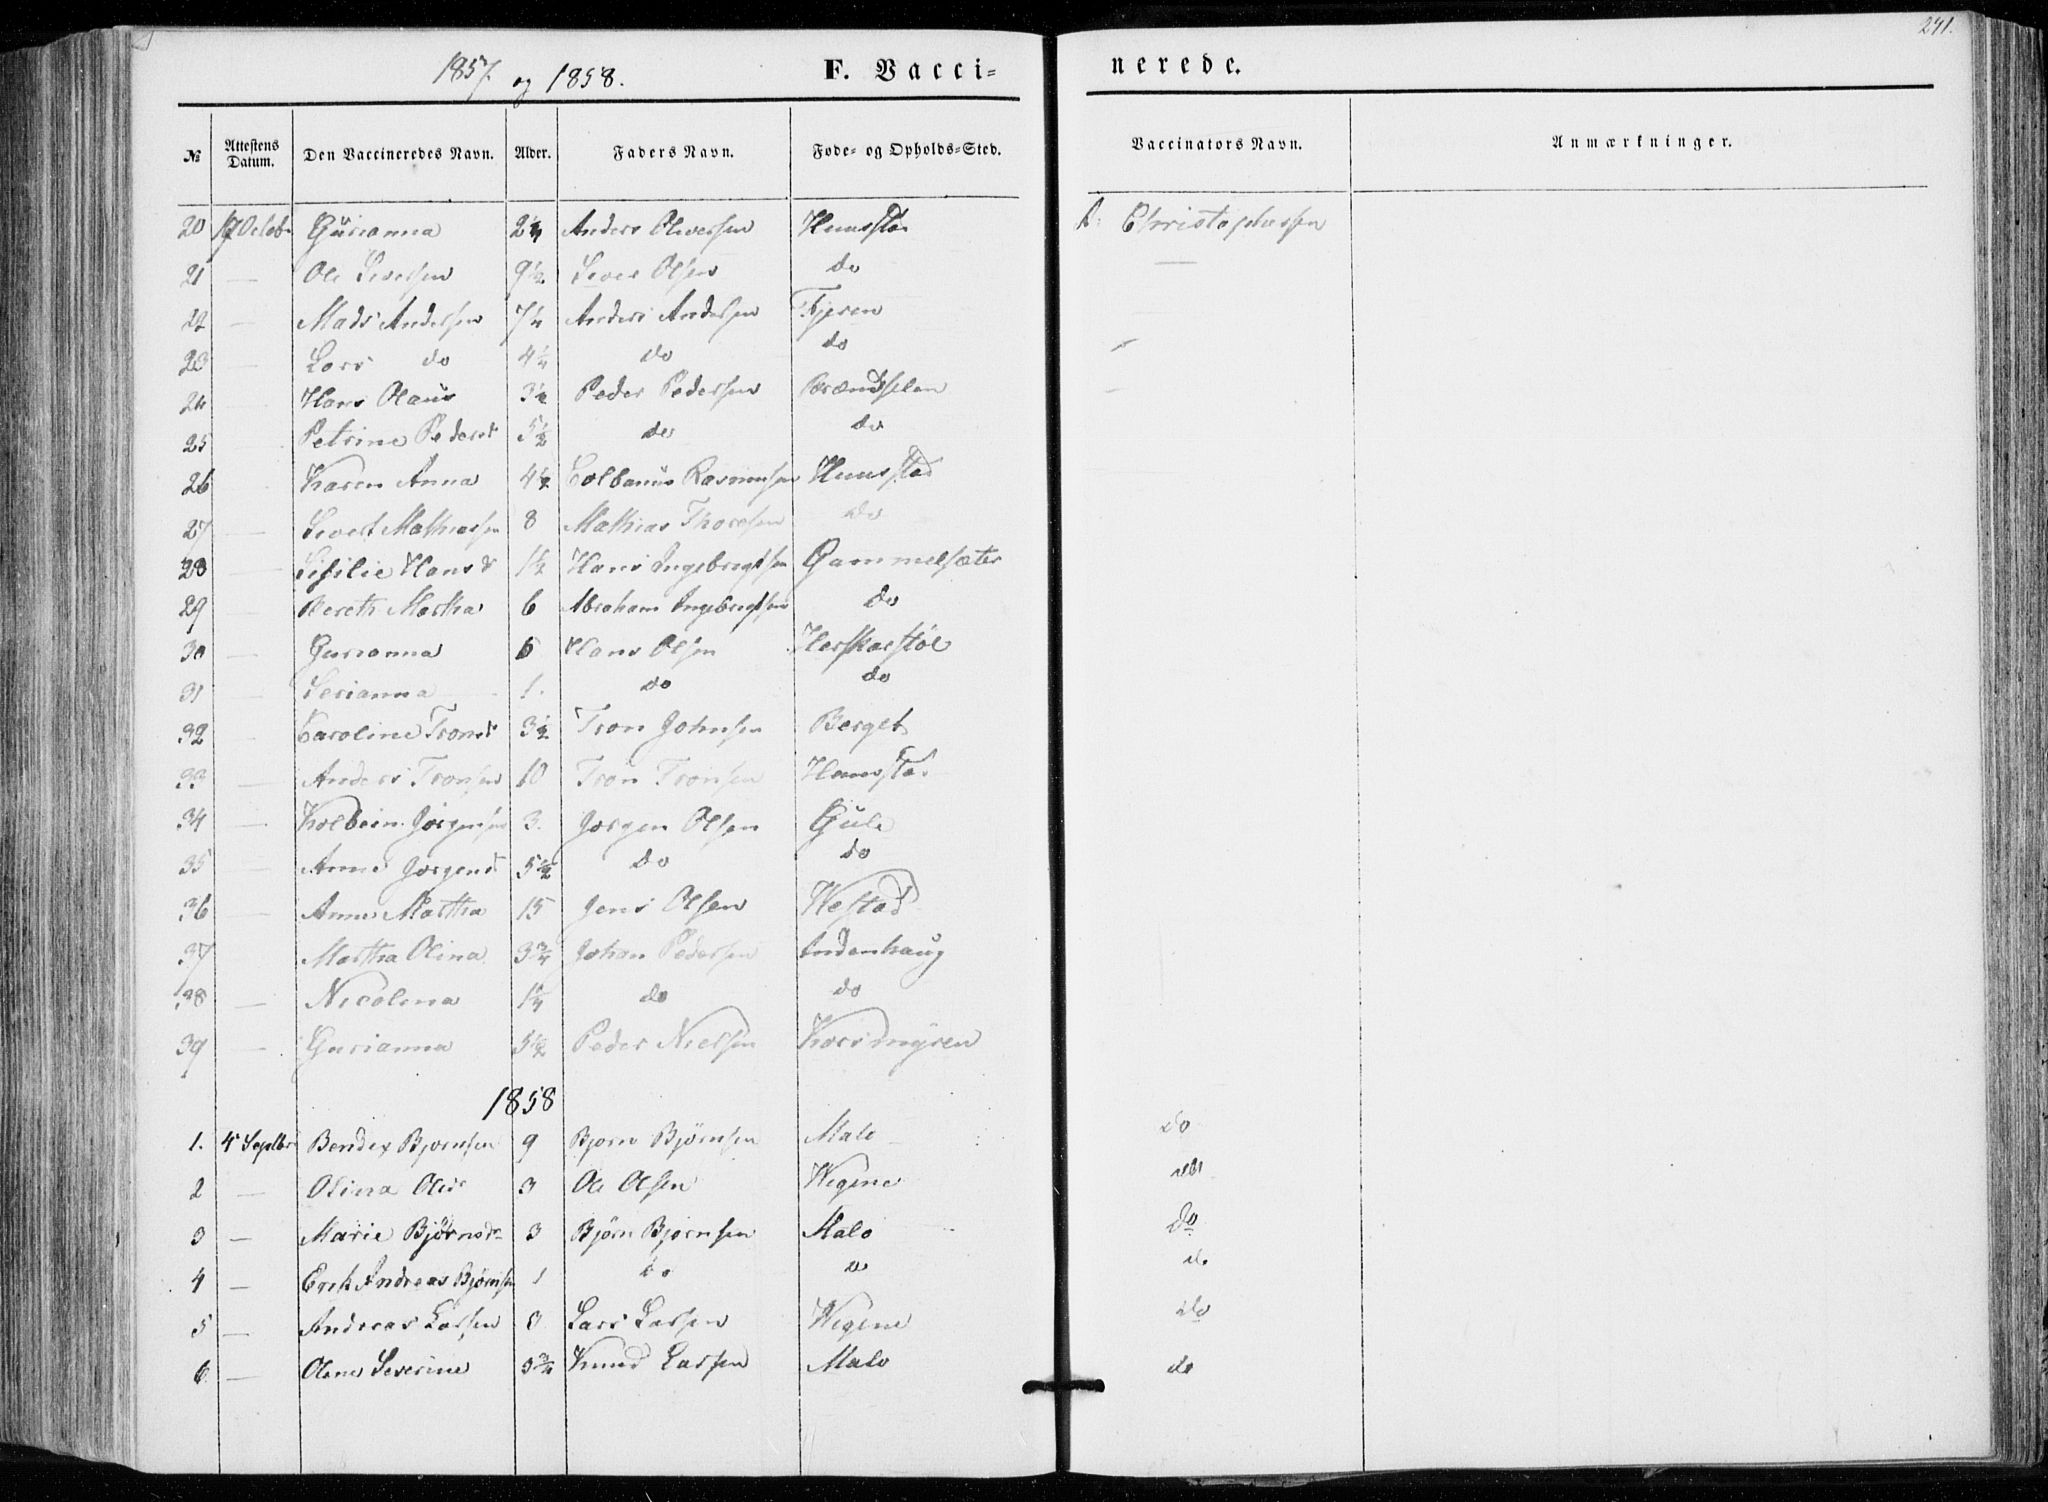 241.
1857 og 1858. F. Vacci- nerede.
№ Attestens Datum. Den Vaccineredes Navn. Alder. Faders Navn. Føde- og Opholds-Sted. Vaccinators Navn. Anmærkninger.
20 17 Octob Gurianna 2 Anders Oliversen Christophersen
21 — Ole Siversen 9½ Siver Olsen do —
22 — Mads Andersen 7¼ Anders Andersen
23 — Lars do 4¼ do do
24 Hans Olaus 3½ Peder Pedersen
25 Petrine Pedersd 5½ do do
26 Karen Anna 4½ Rasmussen
27 — Sivert Mathiassen 8 Mathias Thoresen do
28 — Hansd 1½ Hans Ingebregtsen Gammelsæter
29 — Bereth Martha 6 Abraham Ingebregtsen do
30 — Gurianna Hans Olsen
31 — Serianna 1. do do
32 — Caroline Tronsd 3½ Tron Johnsen Berget
33 — Anders Tronsen 10 Tron Tronsen
34 — Kolbein Jørgensen 3. Jørgen Olsen Gule
35 — Anne Jørgensd 5½ do do
36 — Anne Martha 15 Jens Olsen Westad
37 — Martha Olina 3¾ Johan Pedersen Indenhaug
38 — Nicolina 1¼ do do
39 — Gurianna 5½ Peder Nielsen Korsmyren
1858
1. 4 Septbr Bendix Bjørnsen 9 Bjørn Bjørnsen Malo do
2 — Olina Olsd 3 Ole Olsen Wegene do
3 — Marie Bjørnsd 3 Bjørn Bjørnsen Malo do
4 — Erik Andreas Bjørnsen 1 do do do
5 — Andreas Larsen Lars Larsen Wegene do
6 — Olene Severine Knud Larsen Malo do